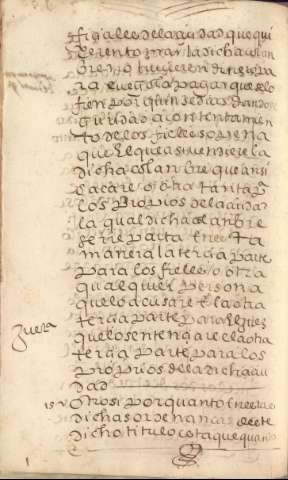 fieles de la ciudad que qui
sieren tomar la dicha colan
bre no tuvieren dineros pa
ra luego la pagar que se lo
fien por quinse dias dandose
guridad a contentamien
to de los fieles so pena
que el que asi vendiere la
dicha colanbre que ansi
sacare o otra tanta pa
los propios de la ciudad
la qual dicha colanbre
se reparta en esta
manera la tercia parte
para los fieles o otra
qualquier persona
que lo acusare e la otra
tercia parte para el juez
que lo sentenciare e la otra
tercia parte para los
propios de la dicha ciu
dad
fuera
15 Otrosi por quanto en estas
dichas ordenanzas deste
dicho titulo esta que